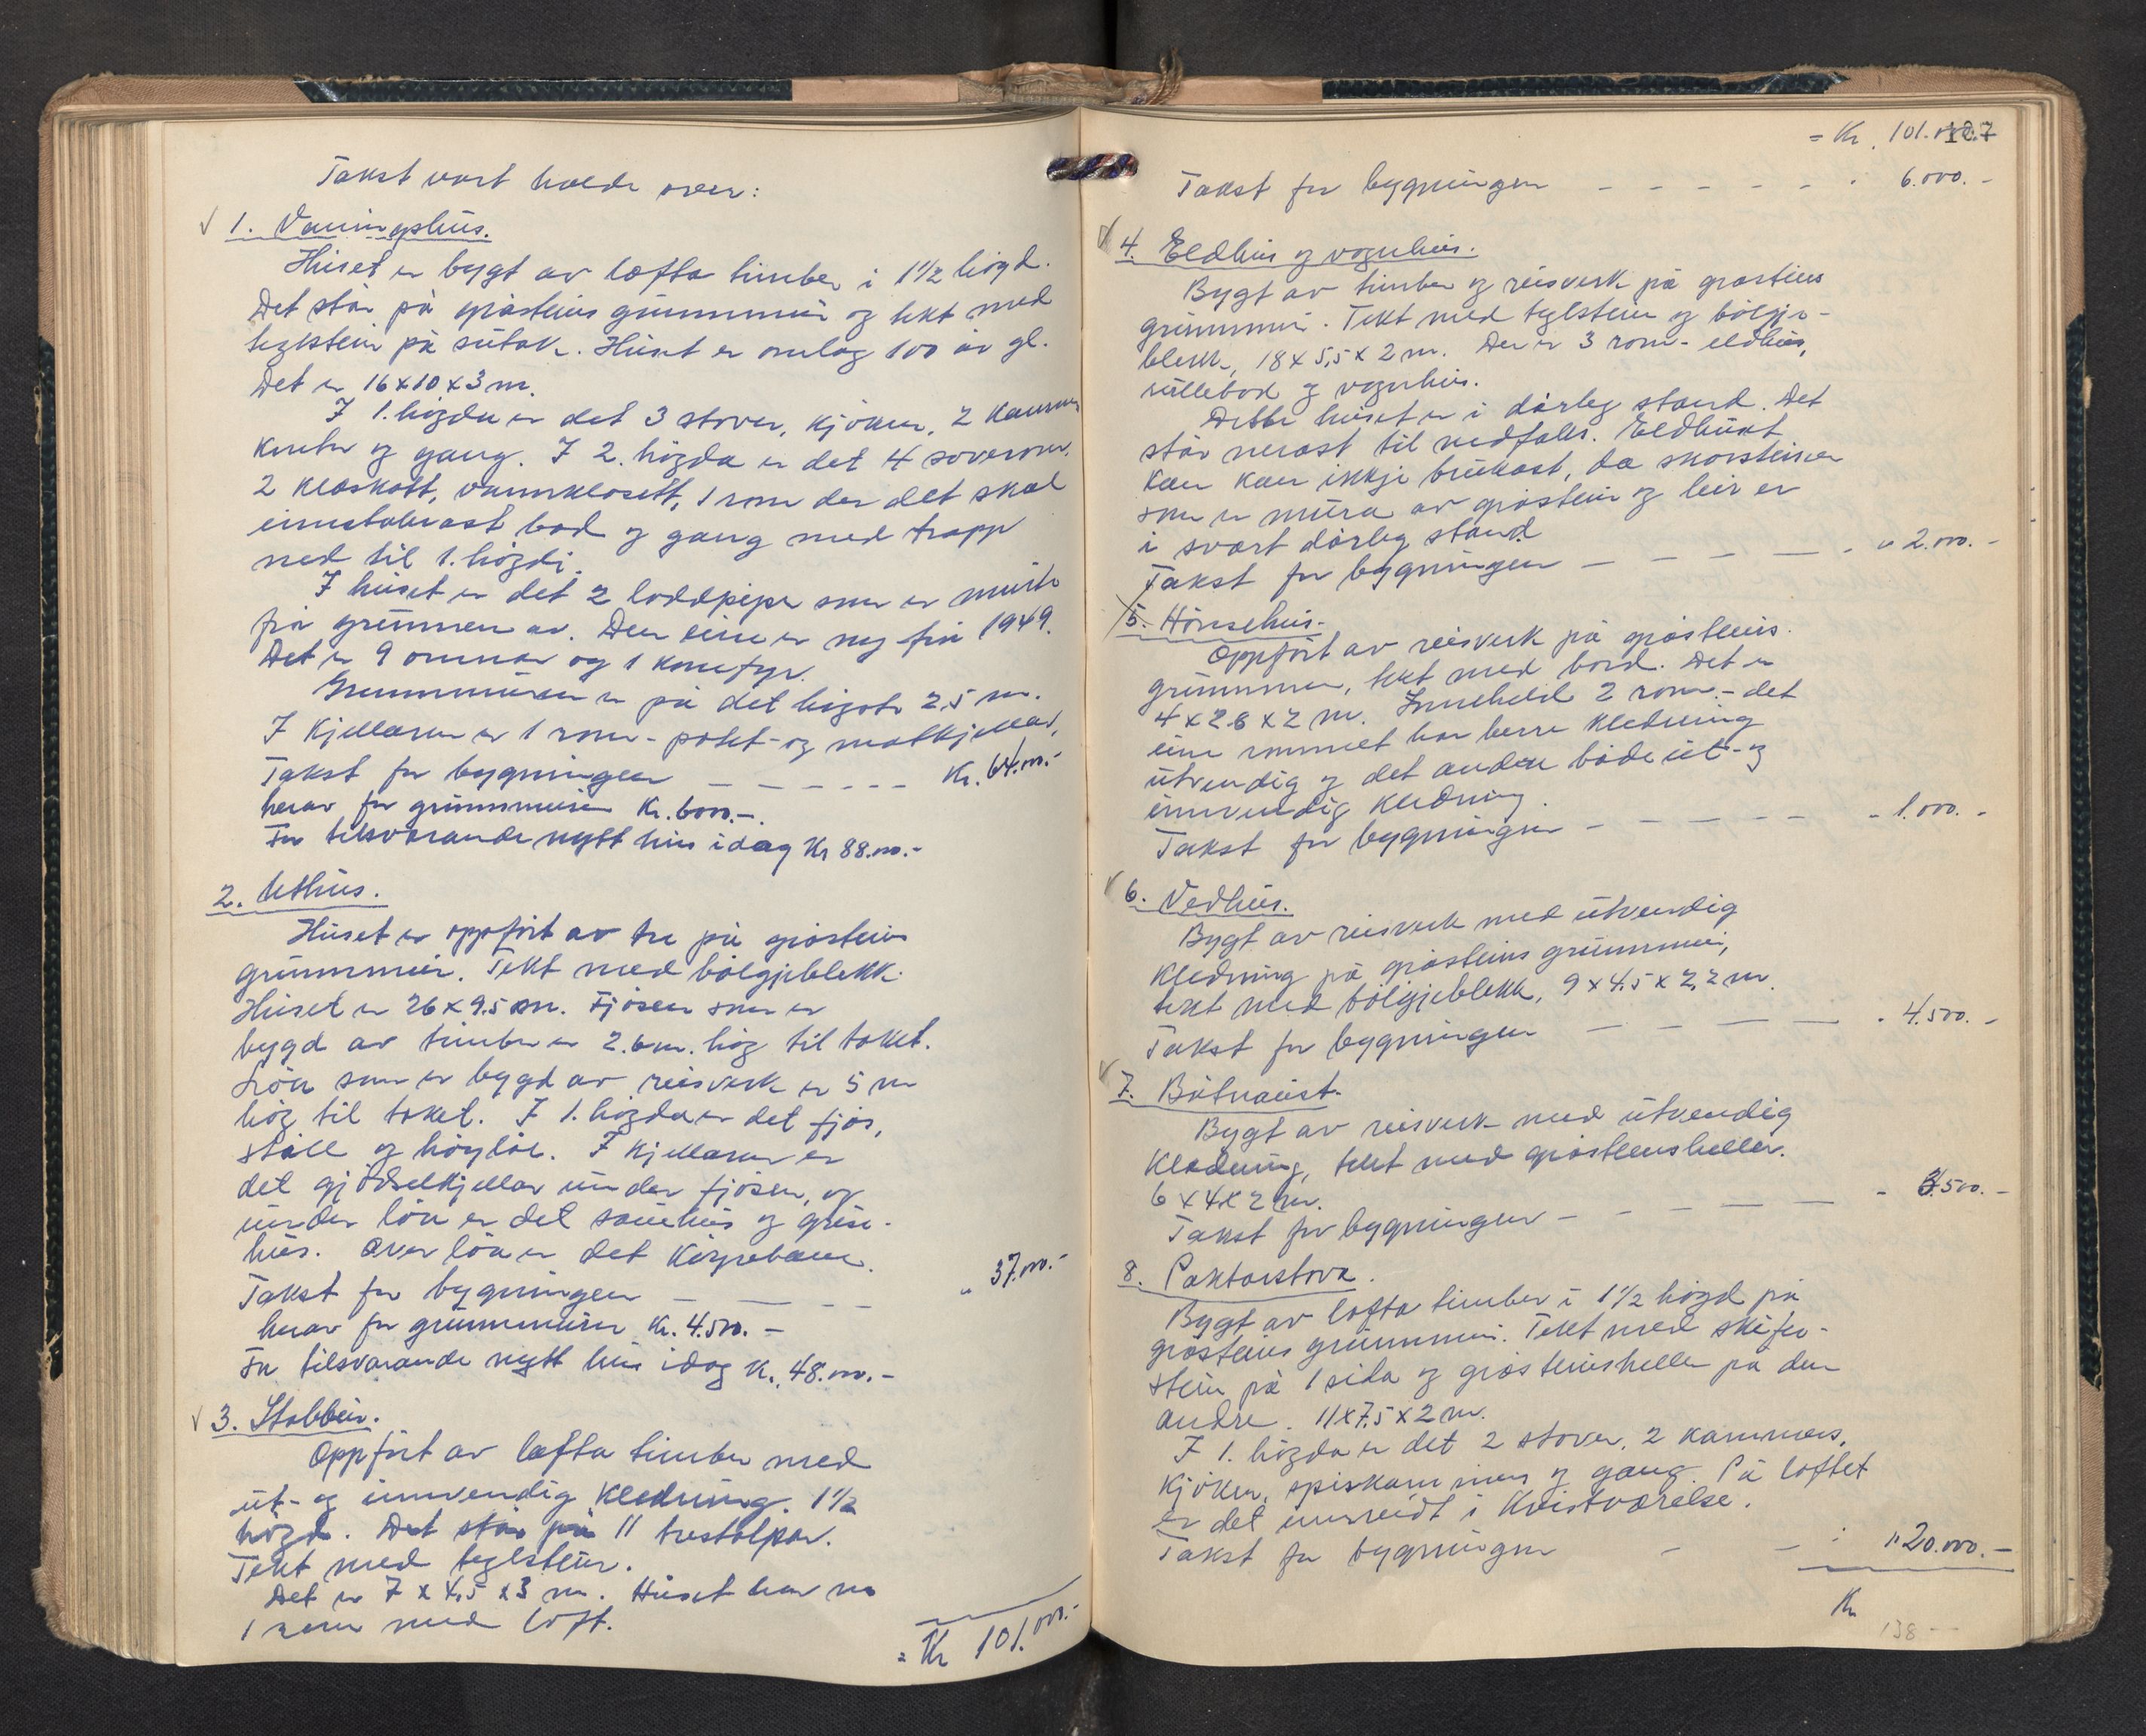 Takst vart halde over:
1. Vaaningshus.
Huset er bygt av lafta timber i 1½ högd.
Det står på gråsteins grunnmur og tekt med
teglstein på sutak. Huset er omlag 100 år gl.
Det er 16x10x3 m.
I 1. högda er det 3 stover, kjöken, 2 kammer
kontor og gang. I 2. högda er det 4 soverom,
2 kleskott, vannklosett, 1 rom der det skal
innstalerast bad og gang med trapp
ned til 1. högdi.
I huset er det 2 loddpiper som er murte
frå grunnen av. Den eine er ny frå 1949.
Det er 9 omnar og 1 komfyr.
Grunnmuren er på det högste 2,5 m.
I Kjellaren er 1 rom - potet- og matkjellar,
Takst for bygningen – – – – – – Kr. 64.000.-
herav for grunnmuren Kr. 6000.-.
For tilsvarande nytt hus idag Kr 88.000.-
2. Uthus.
Huset er oppfört av tre på gråsteins
grunnmur. Tekt med bölgjeblekk.
Huset er 26x9.5 m. Fjösen som er
bygd av timber er 2.6m. hög til taket.
Löa som er bygd av reisverk er 5 m
hög til taket. I 1. högda er det fjös,
stall og höylöe. I Kjellaren er
det gjödselkjellar under fjösen, og
under löa er det sauehus og grise-
hus. Over löa er det köyrebane.
Takst for bygningen – – – – " 37.000.-
herav for grunnmuren Kr. 4.500.-
For tilsvarande nytt hus idag Kr. 48.000.-
3. Stabbur.
Oppfört av lafta timber med
ut- og innvendig kledning. 1½
högd. Det står på 11 trestolpar.
Tekt med teglstein.
Det er 7 x 4,5 x 3 m. Huset har no
1 rom med loft.
= Kr 101.000.-
127
= Kr. 101.000.-
Takst for bygningen – – – – – – " 6.000.-
4. Eldhus og vognhus.
Bygt av timber og reisverk på gråsteins
grunnmur. Tekt med teglstein og bölgje-
blekk, 18 x 5,5 x 2 m. Der er 3 rom - eldhus,
rullebod og vognhus.
Dette huset er i dårleg stand. Det
står nerast til nedfalls. Eldhuset
kan kan ikkje brukast, da skorsteinen
som er mura av gråstein og leir er
i svært dårleg stand
Takst for bygningen – – – – – " 2.000.-
5. Hönsehus.
Oppfört av reisverk på gråsteins
grunnmur, tekt med bord. Det er
4 x 2.8 x 2 m. Inneheld 2 rom - det
eine rommet har berre kledning
utvendig og det andre både ut- og
innvendig kledning.
Takst for bygningen – – – – – - 1.000.-
6. Vedhus.
Bygt av reisverk med utvendig
kledning på gråsteins grunnmur,
tekt med bölgjeblekk, 9 x 4.5 x 2,2 m.
Takst for bygningen – – – – – " 4.500.-
7. Båtnaust.
Bygt av reisverk med utvendig
Kledning, tekt med gråsteinsheller.
6 x 4 x 2 m.
Takst for bygningen – – – – – - 3.500.-
8. Paktarstova.
Bygt av lafta timber i 1½ högd på
gråsteins grunnmur. Tekt med skifer-
stein på 1 sida og gråsteinsheller på den
andre. 11x7.5x2 m.
I 1. högda er det 2 stover, 2 kammers,
kjöken, spiskammer og gang. På loftet
er det innreidt i Kvistværelse.
Takst for bygningen – – " 20.000.-
Kr
138 –